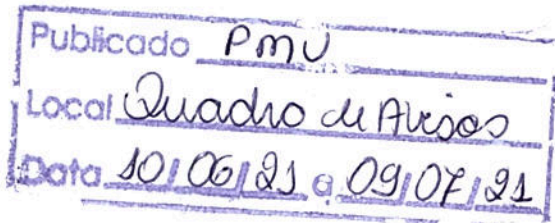 Publicado PMU
Local Quadro de Avisos
Data 10/06/21 a 09/07/21